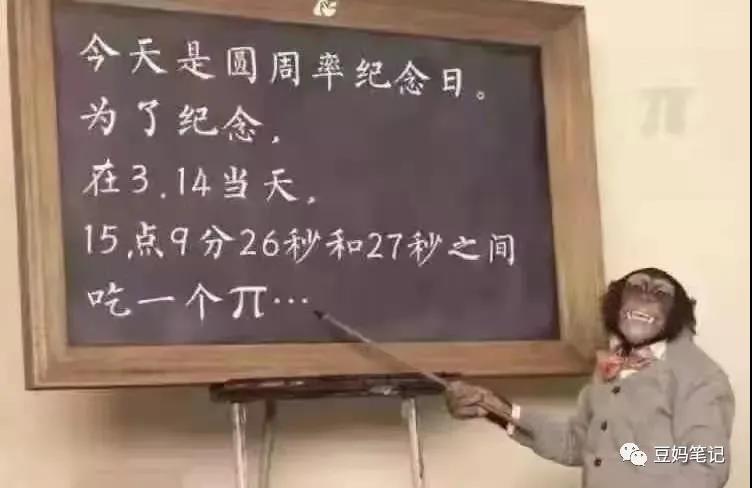 今天是圆周率纪念日。
为了纪念，
在3.14当天，
15.点9分26秒和27秒之间
吃一个π…
π
豆妈笔记